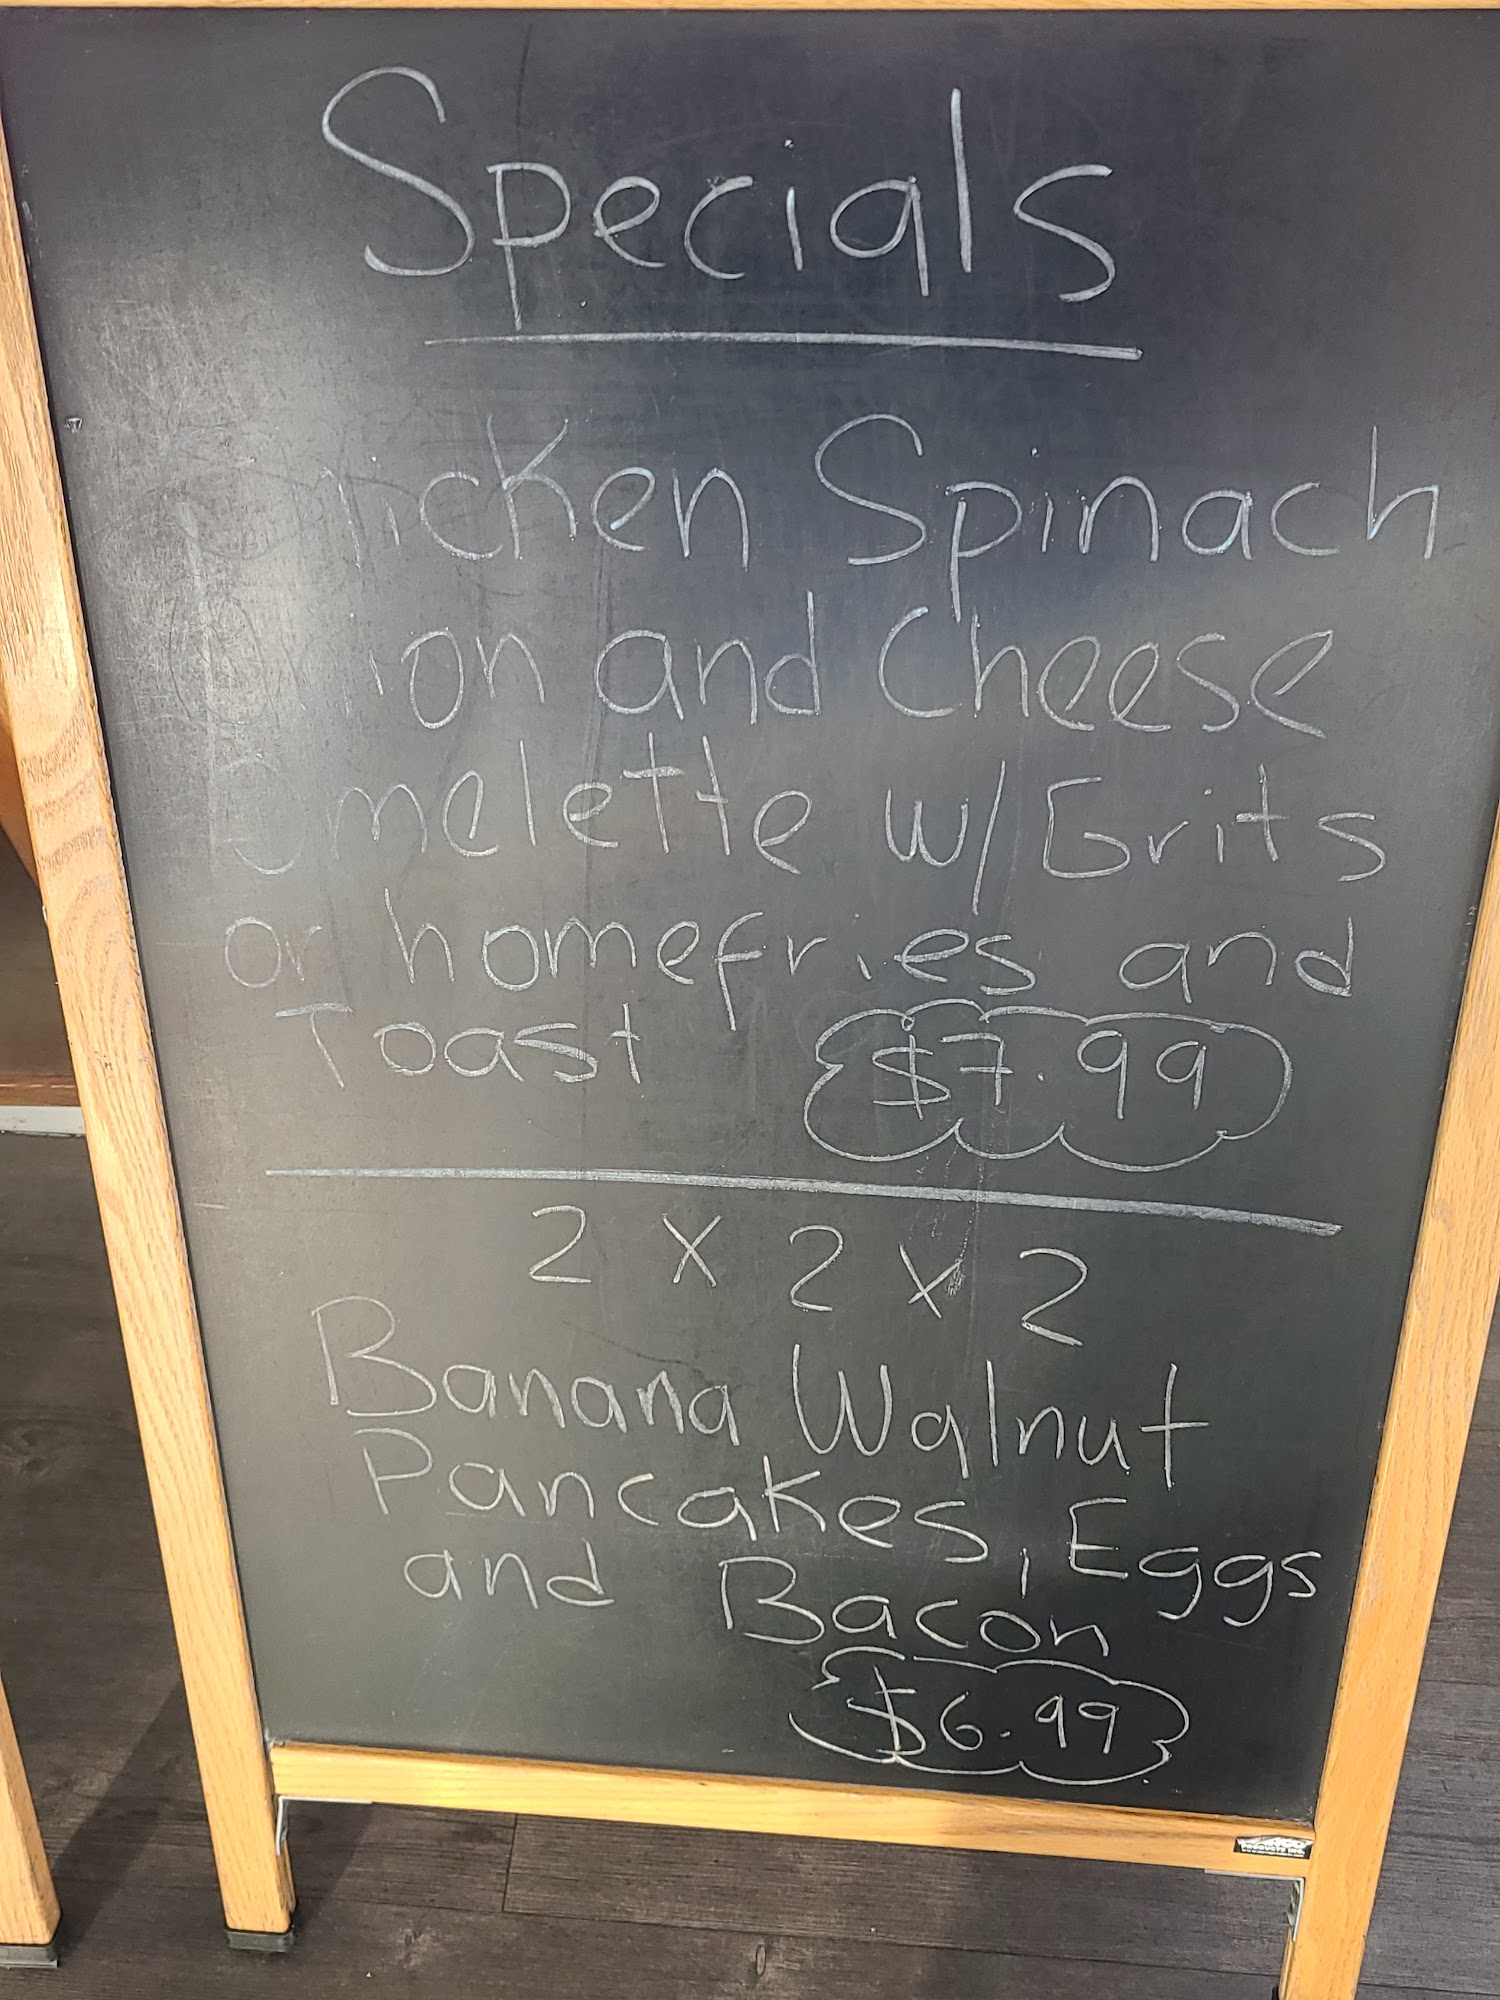 Specials
Chicken Spinach
Onion and Cheese
Omelette w/ Grits
or homefries and
Toast $7.99
2 x 2 x 2
Banana Walnut
Pancakes, Eggs
and Bacon
$6.99